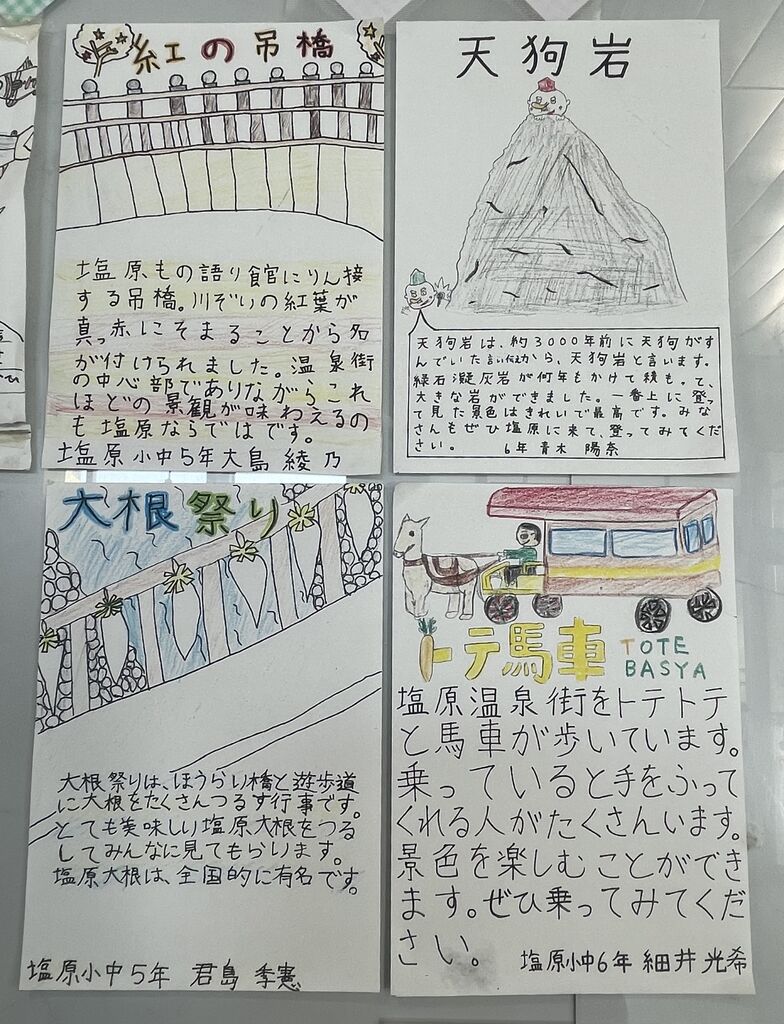 紅の吊橋
塩原もの語り館にりん接
する吊橋。川ぞいの紅葉が
真っ赤にそまることから名
が付けられました。温泉街
の中心部でありながらこれ
ほどの景観が味わえるの
も塩原ならではです。
塩原小中5年大島 綾乃
天狗岩
天狗岩は、約3000年前に天狗がす
んでいた言い伝えから、天狗岩と言います。
緑石凝灰岩が何年もかけて積もって、
大きな岩ができました。一番上に登っ
て見た景色はきれいで最高です。みな
さんもぜひ塩原に来て、登ってみてくだ
さい。 6年 青木 陽奈
大根祭り
大根祭りは、ほうらい橋と遊歩道
に大根をたくさんつるす行事です。
とても美味しい塩原大根をつる
してみんなに見てもらいます。
塩原大根は、全国的に有名です。
塩原小中5年 君島 季憲
トテ馬車 TOTE
BASYA
塩原温泉街をトテトテ
と馬車が歩いています。
乗っていると手をふって
くれる人がたくさんいます。
景色を楽しむことができ
ます。ぜひ乗ってみてくだ
さい。 塩原小中6年 細井 光希